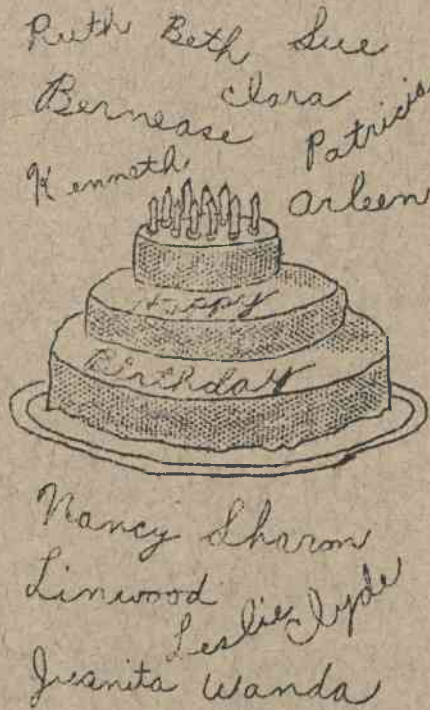 Ruth Beth Sue
Clara
Bernease
Patricia
Kenneth
Arleen
Happy
Birthday
Nancy Sharon
Linwood
Leslie Clyde
Juanita Wanda